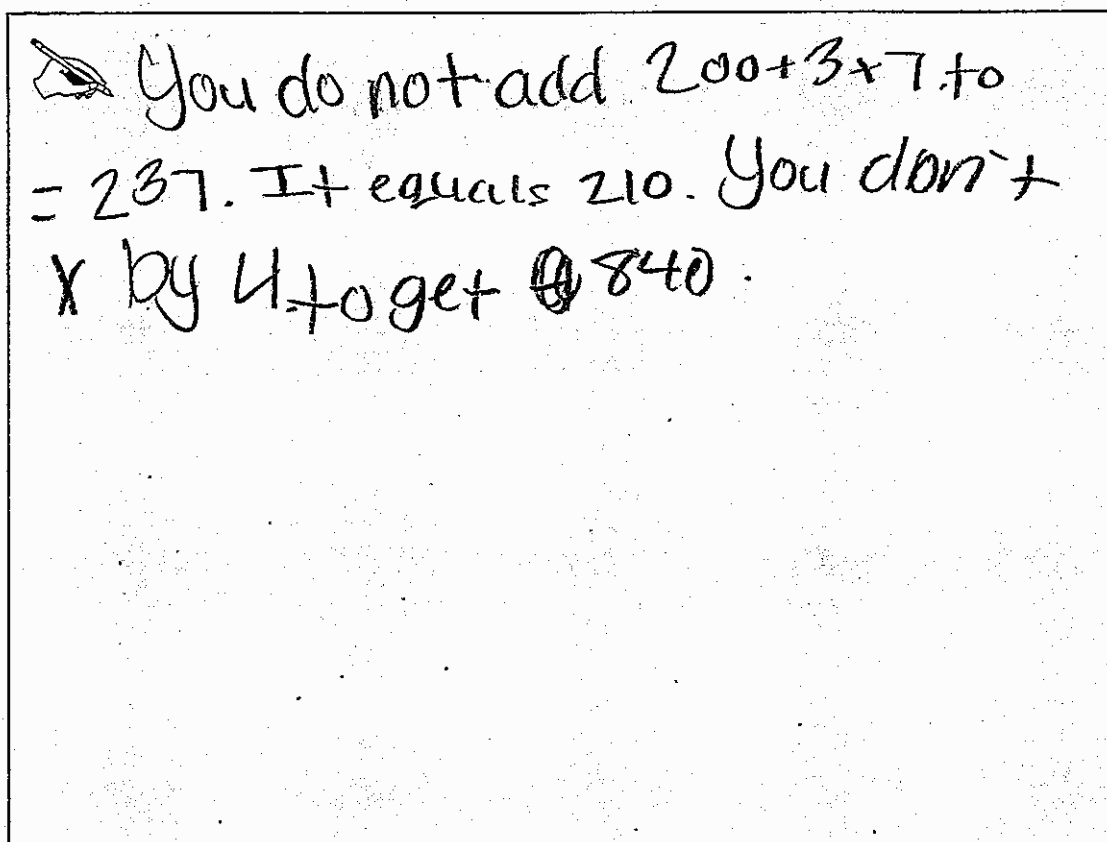 You do not add 200+3+7.to
= 237. It equals 210. You don't
x by 4.to get 840.